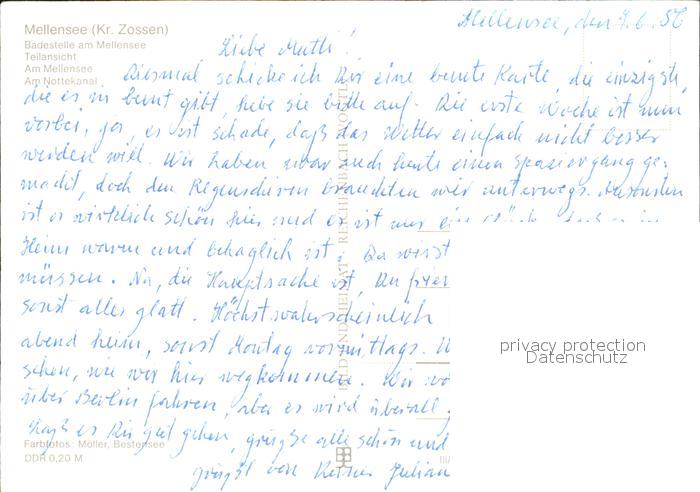 Mellensee (Kr. Zossen)
Badestelle am Mellensee
Teilansicht
Am Mellensee
Am Nottekanal
Mellensee, den 9.6.86
Liebe Mutti!
Diesmal schicke ich Dir eine bunte Karte, die einzigste,
die es in bunt gibt, hebe sie bitte auf. Die erste Woche ist nun
vorbei, ja, es ist schade, daß das Wetter einfach nicht besser
werden will. Wir haben zwar auch heute einen Spaziergang ge-
macht, doch den Regenschirm brauchten wir unterwegs. Ansonsten
ist es wirklich schön hier und es ist nur ein Glück, daß es im
Heim warm und behaglich ist. Du wirst
müssen. Na, die Hauptsache ist, Du
sonst alles glatt. Höchstwahrscheinlich
abend heim, sonst Montag vormittags.
sehen, wie wir hier wegkommen. Wir
über Berlin fahren, aber es wird überall
Laß es Dir gut gehen, grüße alle schön und
grüßt von
privacy protection
Datenschutz
BILD UND HEIMAT REICHENBACH (VOGTL)
Farbfotos: Möller, Bestensee
DDR 0,20 M